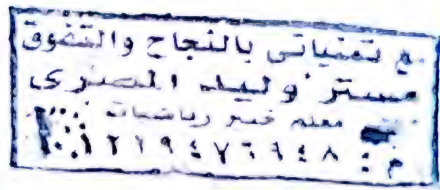 مع تمنياتى بالنجاح والتفوق
مستر وليد المصرى
معلم خبير رياضيات
م : ٠١٢١٩٤٧٦٩٤٨